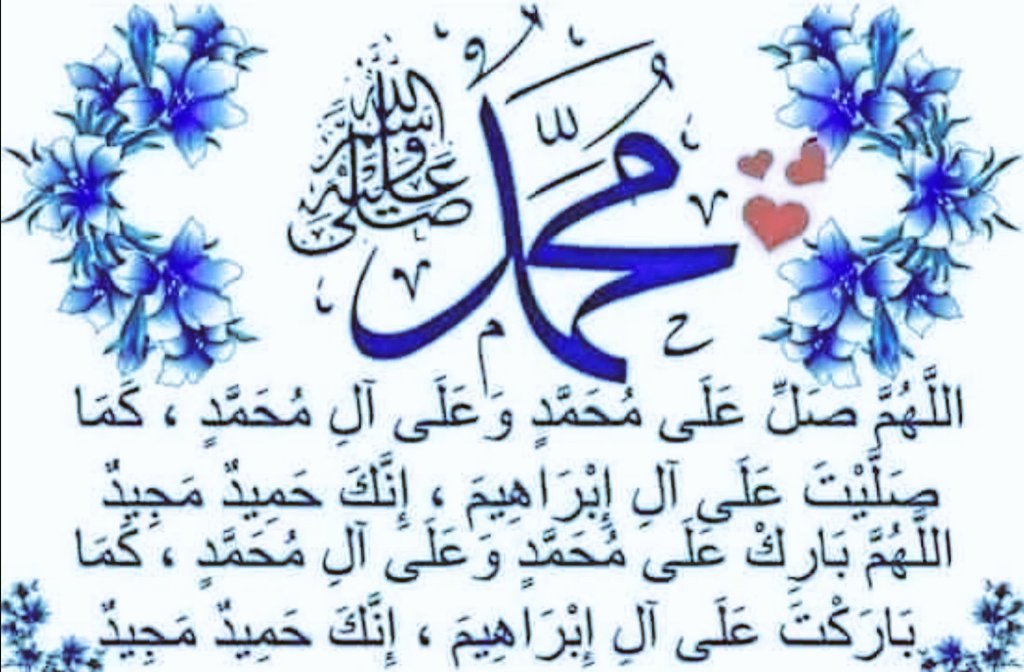 محمد
صلى الله عليه وسلم
اللَّهُمَّ صَلِّ عَلَى مُحَمَّدٍ وَعَلَى آلِ مُحَمَّدٍ ، كَمَا
صَلَّيْتَ عَلَى آلِ إِبْرَاهِيمَ ، إِنَّكَ حَمِيدٌ مَجِيدٌ
اللَّهُمَّ بَارِكْ عَلَى مُحَمَّدٍ وَعَلَى آلِ مُحَمَّدٍ ، كَمَا
بَارَكْتَ عَلَى آلِ إِبْرَاهِيمَ ، إِنَّكَ حَمِيدٌ مَجِيدٌ